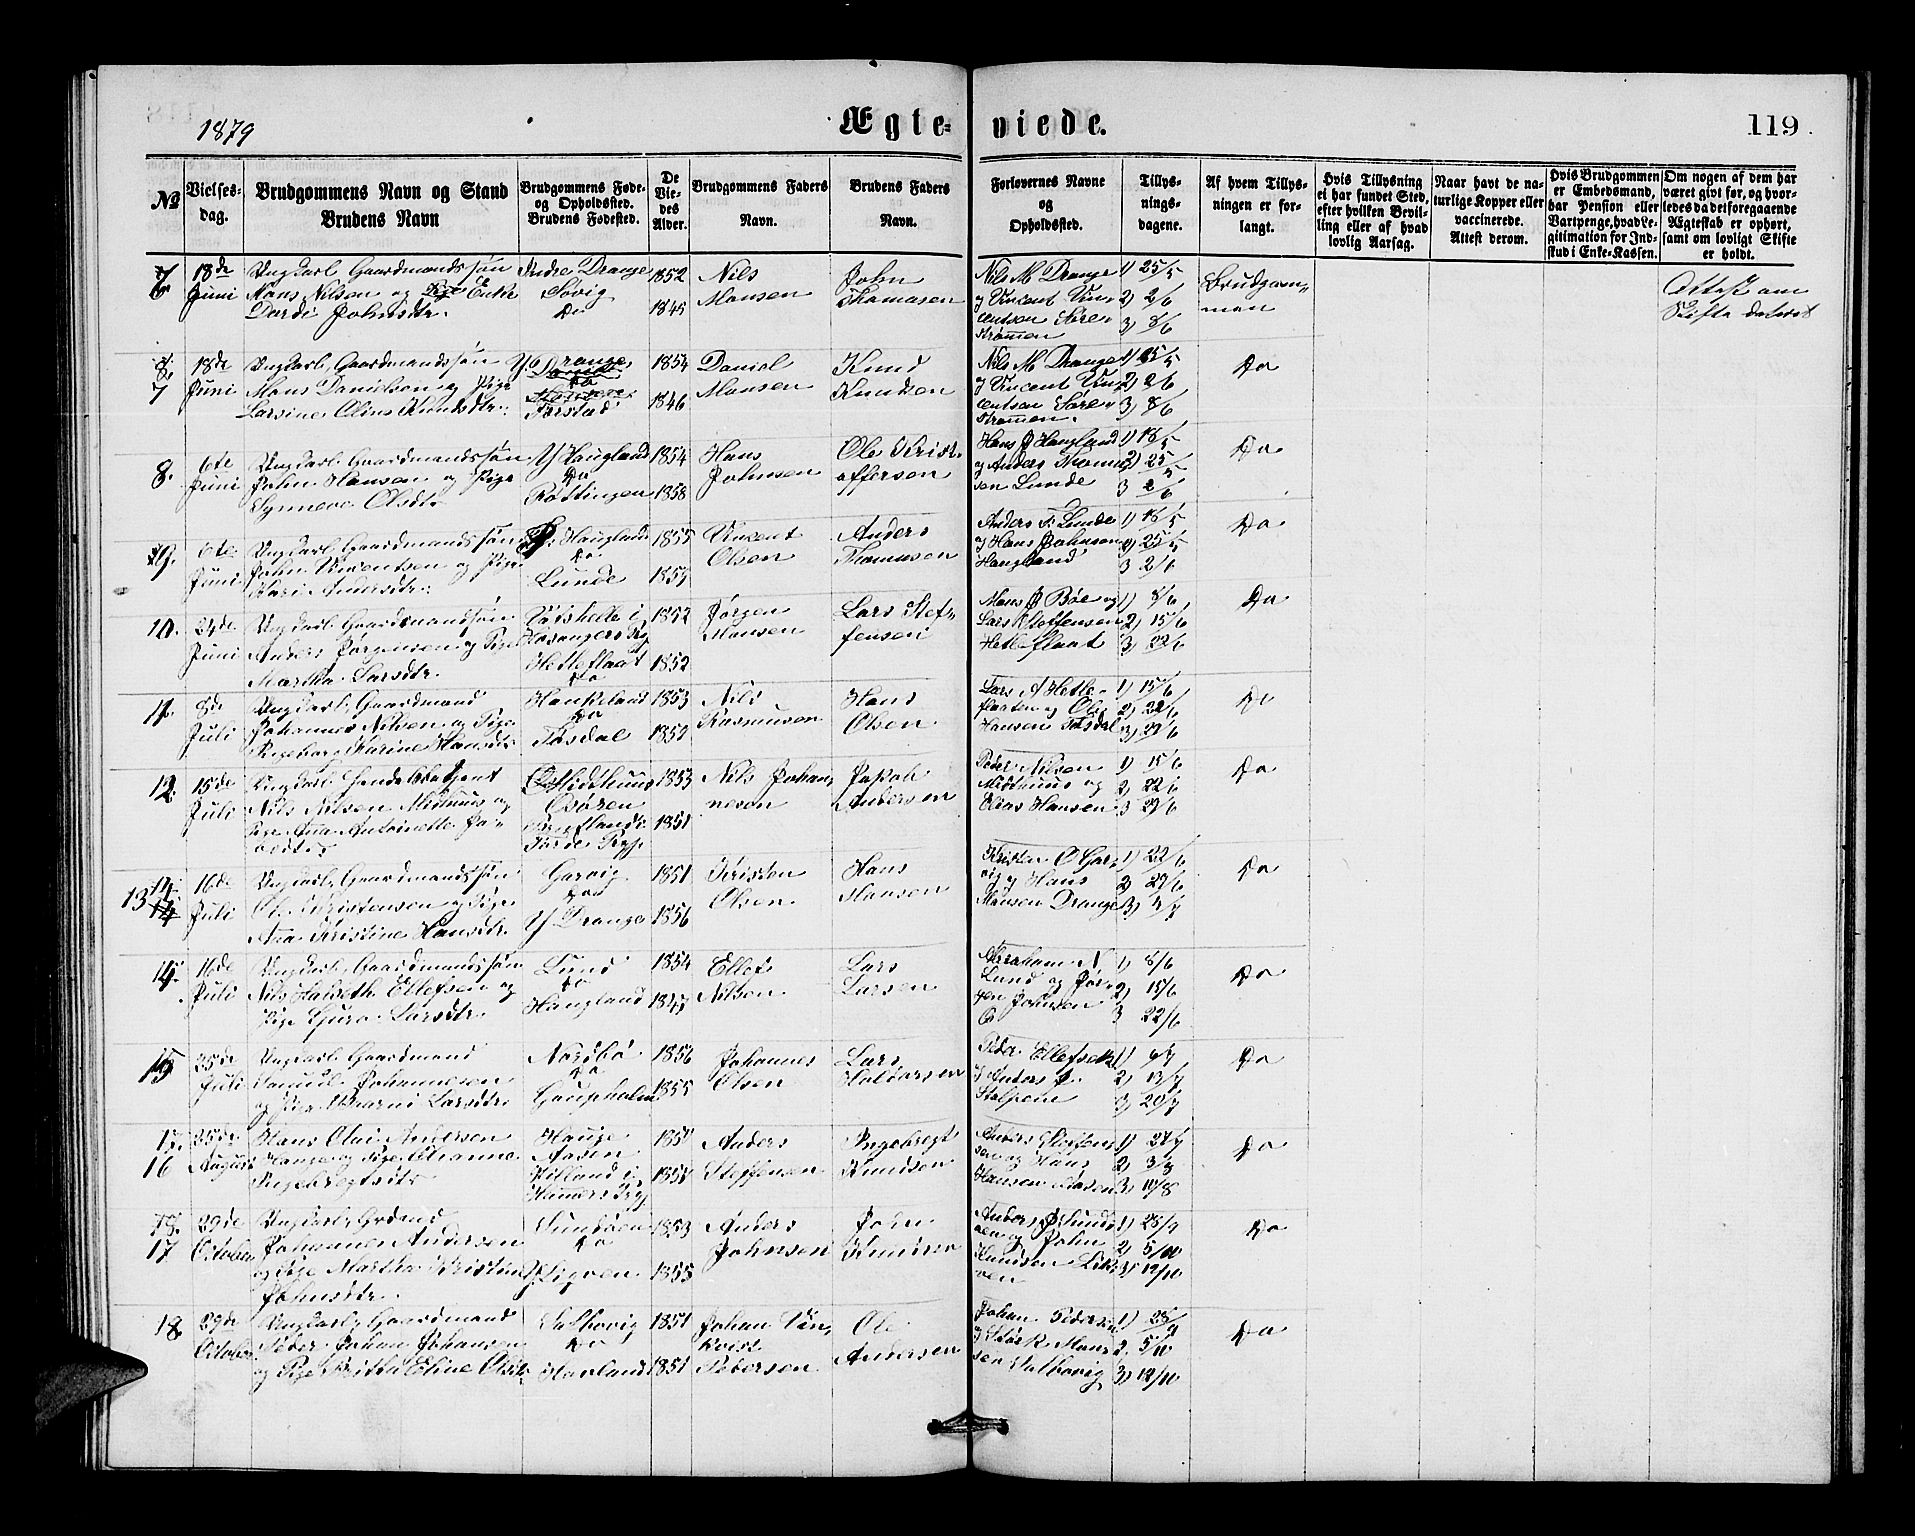 1879
Ægte-
viede.
119
No
Vielses-
dag.
Brudgommens Navn og Stand
Brudens Navn
Brudgommens Føde-
og Opholdssted.
Brudens Fødested.
De
Vie-
des
Alder.
Brudgommens Faders
Navn.
Brudens Faders
Navn.
Forlovernes Navne
og
Opholdssted.
Tillys-
nings-
dagene.
Af hvem Tillys-
ningen er for-
langt.
Hvis Tillysning
ei har fundet Sted,
efter hvilken Bevil-
ling eller af hvad
lovlig Aarsag.
Naar havt de na-
turlige Kopper eller
vaccinerede.
Attest derom.
Hvis Brudgommen
er Embedsmand,
har Pension eller
Vartpenge, hvad Le-
gitimation for Ind-
stud i Enke-Kassen.
Om nogen af dem har
været givt før, og hvor-
ledes da det foregaaende
Ægteskab er ophørt,
samt om lovligt Skifte
er holdt.
18de Juni
Ungkarl Gaardmandssøn
Mons Nilsen og Enke
Johnsdtr.
Indre Drange
Søvig
Do
1852
1845
Nils
Monsen
John
Thomasen
Nils M Drange
og Vincent Vin-
centsen Søre
Strømmen
1) 25/5
2) 2/6
3) 8/6
Brudgom-
men
Attest om
Skifte dateret
7
18de Juni
Ungkarl Gaardmandssøn
Mons Danielsen og Pige
Larsine Oline Knudsdtr.
Y. Drange
Do
1854
1846
Daniel
Monsen
Knud
Knudsen
Nils M Drange
og Vincent Vin-
centsen Søre
Strømmen.
1) 25/5
2) 2/6
3) 8/6
Do
8.
6te Juni
Ungkarl Gaardmandssøn
John Hansen og Pige
Synneve Olsdtr
Y Haugland
Do
Røttingen
1854
1858
Hans
Johnsen
Ole Krist-
offersen
Hans J Haugland
og Anders Thoma-
sen Lunde
1) 18/5
2) 25/5
3 2/6
Do
9.
6te Juni
Ungkarl Gaardmandssøn
John Vincentsen og Pige
Kari Andersdtr.
Haugland
Do
Lunde
1855
Vincent
Olsen
Anders
Thomasen
Anders T. Lunde
og Hans Johnsen
Haugland
1) 18/5
2) 25/5
3 2/6
Do
10.
24de Juni
Ungkarl Gaardmandssøn
Anders Jørgensen og Pige
Martha Larsdtr.
Hetleflaat
1852
1852
Jørgen
Monsen
Lars Stef-
fensen
Mons J Bøe og
Lars Steffensen
Hetleflaat
1) 8/6
2) 15/6
3) 22/6
Do
11.
8de Juli
Ungkarl Gaardmand
Johannes Nilsen og Pige
Ingeborg Karine Hansdtr
Haukeland
Do
Tøsdal
1853
1852
Nils
Rasmusen
Hans
Olsen
Lars A Hetle-
flaaten og Ole
Hansen Tøsdal
1) 15/6
2) 22/6
3) 29/6
Do
12.
15de Juli
Ungkarl Handelsbetjent
Nils Nilsen Midthuus og
Pige Ana Antoinette Ja-
Midthuus
Osøren
1853
1851
Nils Johan-
nesen
Jakob
Andersen
Peder Nilsen
Midthuus og
Elias Hansen
1) 15/6
2) 22/6
3 29/6
Do
13
16de Juli
Ungkarl Gaardmandssøn
Ole Kristensen og Pige
Ana Kristine Hansdtr.
Gaasvig
Do
Y Drange
1851
1856
Kristen
Olsen
Hans
Monsen
Kristen O Gaas-
vig og Hans
Monsen Drange
1) 22/6
2) 29/6
Do
14.
16de Juli
Ungkarl Gaardmandssøn
Nils Halseth Ellefsen og
Pige Guro Larsdtr.
Lund
Do
Haugland
1854
1847
Ellef
Nilsen
Lars
Larsen
Abraham N
Lund og Jør-
gen Johnsen
Os
1) 8/6
2) 15/6
3 22/6
Do
15
25de Juli
Ungkarl Gaardmand
Samuel Johannesen
og Pige Larsdtr
Nordbø
Do
Gaupholm
1856
1855
Johannes
Olsen
Lars
Haldorsen
Peder Ellefsen
og Anders J.
2) 13/7
3) 20/7
Do
16
25de August
Hans Olai Andersen
Hauge og Pige Johanne
Ingebregtsdtr
Hauge
Aasen
Anders
Steffensen
Ingebregt
Knudsen
Anders Steffen-
sen og Hans
Hansen Aasen
1) 27/7
2) 3/8
3) 10/8
Do
17
29de October
Ungkarl
Johannes Andersen
og Pige Martha Kristine
Johnsdtr.
Sundøen
Do
1853
1855
Anders
Johnsen
John
Knudsen
Anders J Sund-
øen og John
Knudsen
1) 28/9
2) 5/10
3) 12/10
Do
18
29de October
Ungkarl Gaardmand
Peder Johan Johansen
og Pige Britha Eline Olsdtr
Do
Havland
1851
1851
Johan
Pedersen
Ole
Andersen
Johan Pedersen
1) 28/9
2. 5/10
3) 12/10
Do